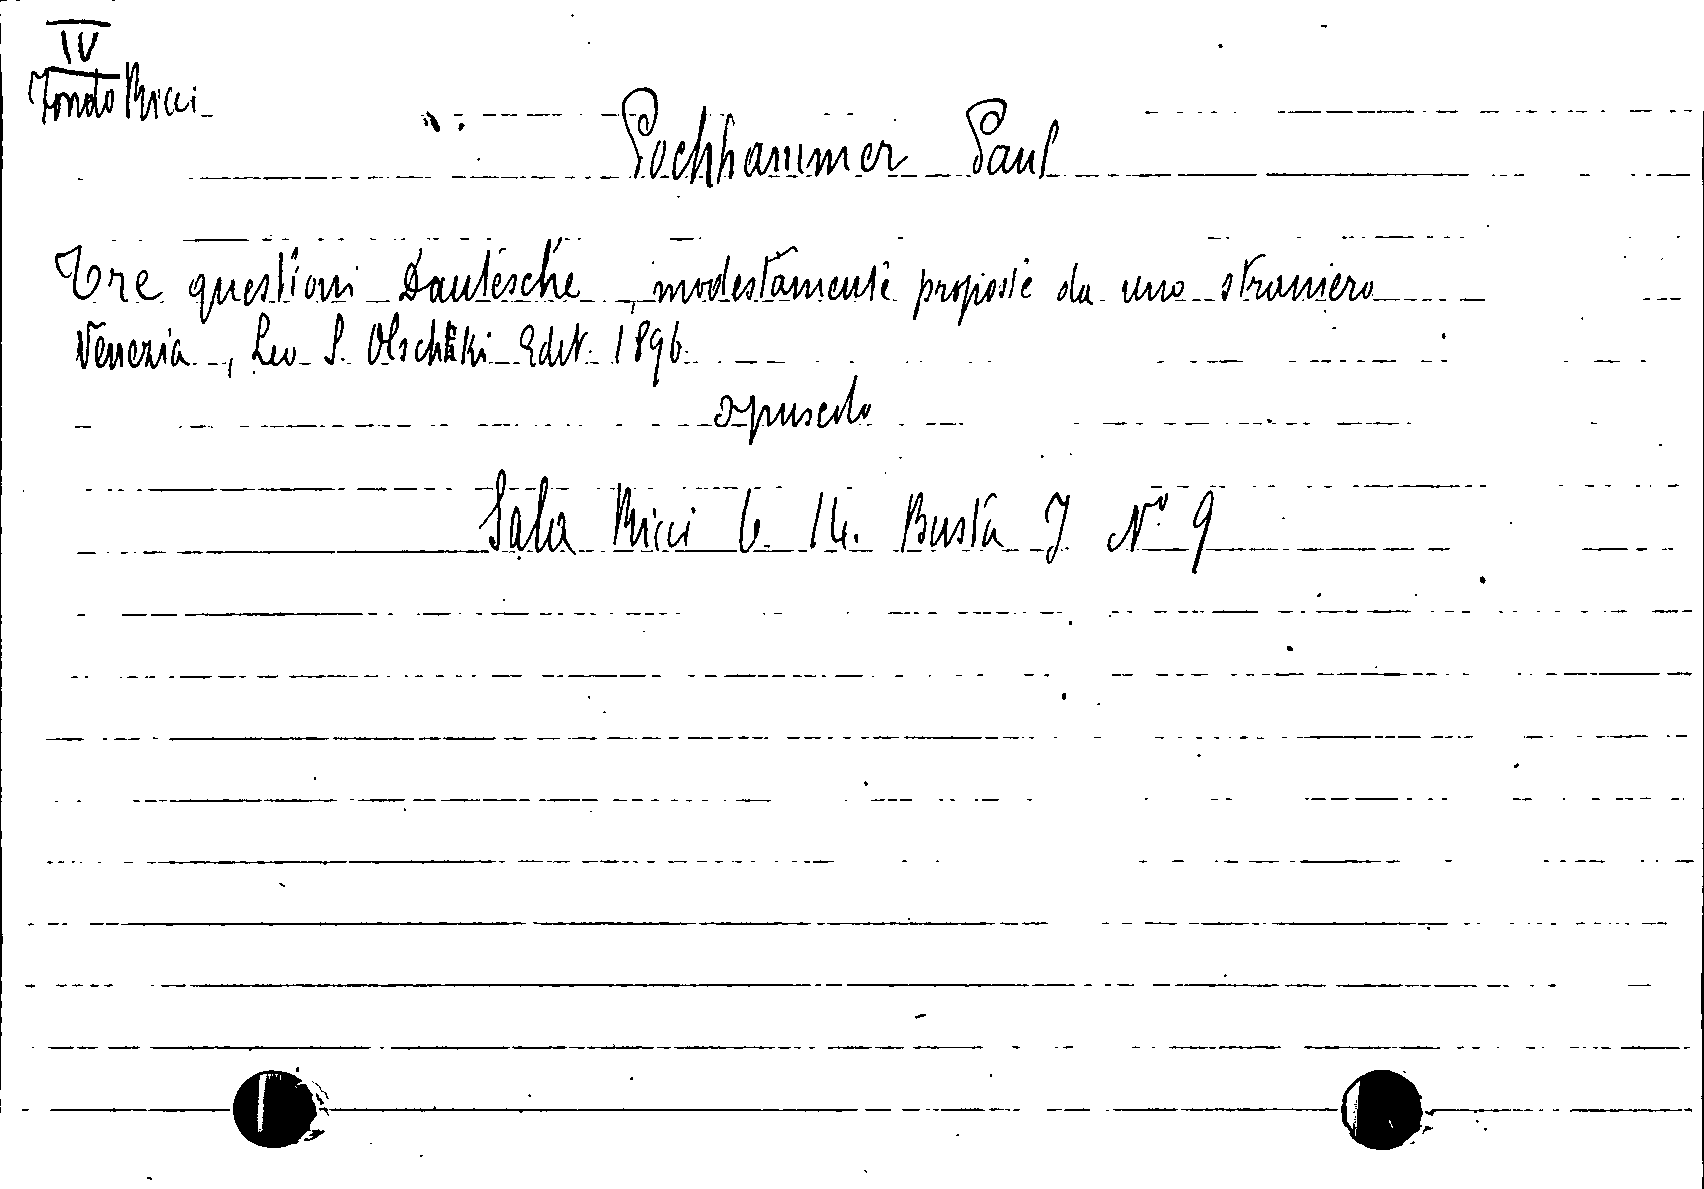 IV
Fondo Ricci
Pochhammer Paul
Tre questioni Dantesche, modestamente proposte da uno straniero
Venezia, Leo S. Olschki Edit. 1896.
opuscolo
Sala Ricci 6. 14. Busta I Nº 9